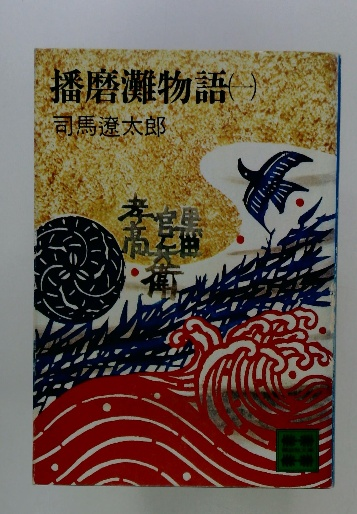 播磨灘物語㈠
司馬遼太郎
黒田
官兵衛
孝高